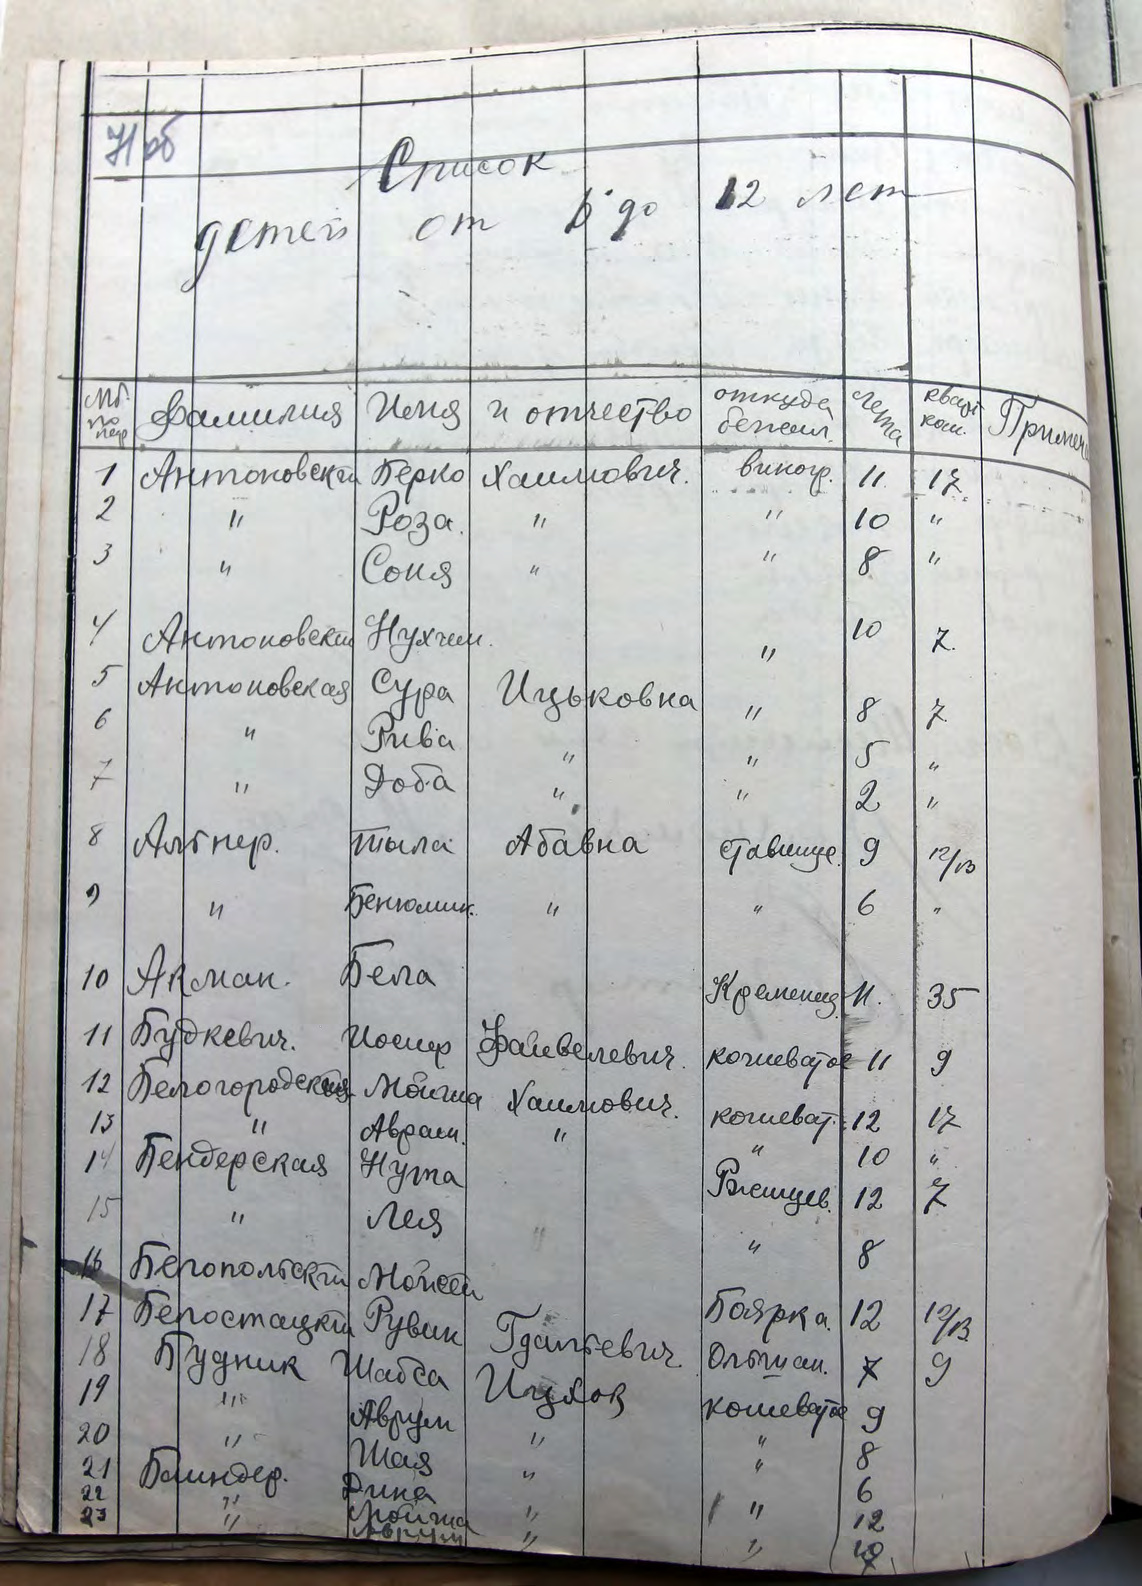 Список
детей от до 12 лет
№№ по пор Фамилия Имя и отчество откуда бежал. лета кварт ком. Примеч
1 Антоновский Берко Хаимович. виногр. 11. 17
2 " Роза. " " 10 "
3 " Соня " " 8 "
4 Антоновский Нухим. " 10 7.
5 Антоновская Сура Ицьковна " 8 7
6 " Рива " " 5 "
7 " Доба " " 2 "
8 Альпер. Тыла Абавна ставище. 9 12/13
9 " Бенюмин. " " 6 "
10 Акман. Бела Кременец 11. 35
11 Будкевич. Иосиф Файвелевич. кошеватое 11 9
12 Белогородский Мойша Хаимович. кошеват. 12 17
13 " Аврам. " " 10 "
14 Бендерская Нума Ржищев. 12 7
15 " Лея " " 8
16 Белопольский Мойсей Боярка. 12 12/13
17 Белостацкий Рувин Гдальевич. Ольшан. 7 9
18 Будник Шабса Ицхов кошеватое 9
19 " Аврум " " 8
20 " Шая " " 6
21 Блиндер. Дина " " 12
22 " Мойша " " 10
23 " Аврум " "